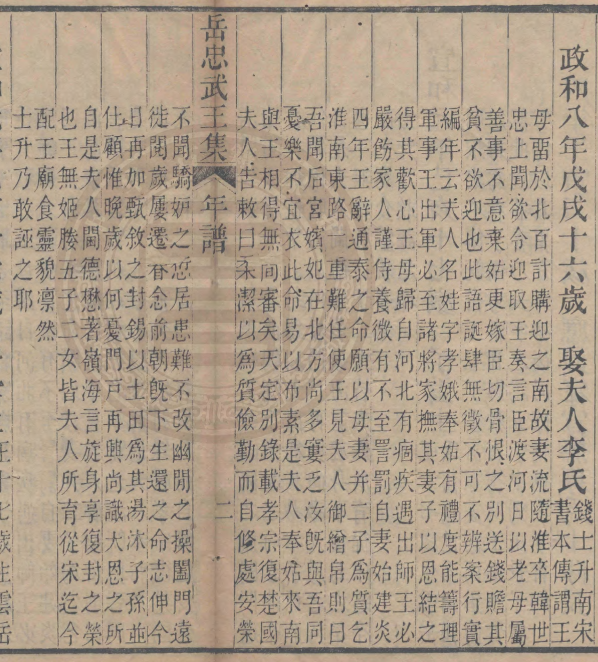 政和八年戊戌十六歲 娶夫人李氏 錢士升南宋
書本傳謂王
母畱於北百計購迎之南故妻流隨淮卒韓世
忠上聞欲令迎取王奏言臣渡河日以老母屬
善事不意棄姑更嫁臣切骨恨之别送錢贍其
貧不欲迎也此語誕肆無徵不可不辨案行實
編年云夫人名姓字孝娥奉姑有禮度能籌理
軍事王出軍必至諸將家撫其妻子以恩結之
得其歡心王母歸自河北有痼疾遇出師王必
嚴飭家人謹侍養微有不至詈罰自妻始建炎
四年王辭通泰之命願以母妻并二子爲質乞
淮南東路一重難任使王見夫人御繒帛則曰
吾聞后宮嬪妃在北方尚多窶乏汝既與吾同
憂樂不宜衣此命易以布素是夫人奉姑來南
與王相得無間審矣天定别錄載孝宗復楚國
夫人告敕曰柔潔以爲質儉勤而自修處安榮
岳忠武王集 年譜 二
不聞驕妒之愆居患難不改幽閒之操闔門遠
徙閲歲屢遷眷念前朝既下生還之命志伸今
日再加甄敘之封錫以土田爲其湯沐子孫並
仕顧惟晚歲以何憂門戸再興尚識大恩之所
自是夫人閫德懋著嶺海言旋身享復封之榮
也王無姬媵五子二女皆夫人所育從宋迄今
配王廟食靈貌凛然
士升乃敢誣之耶